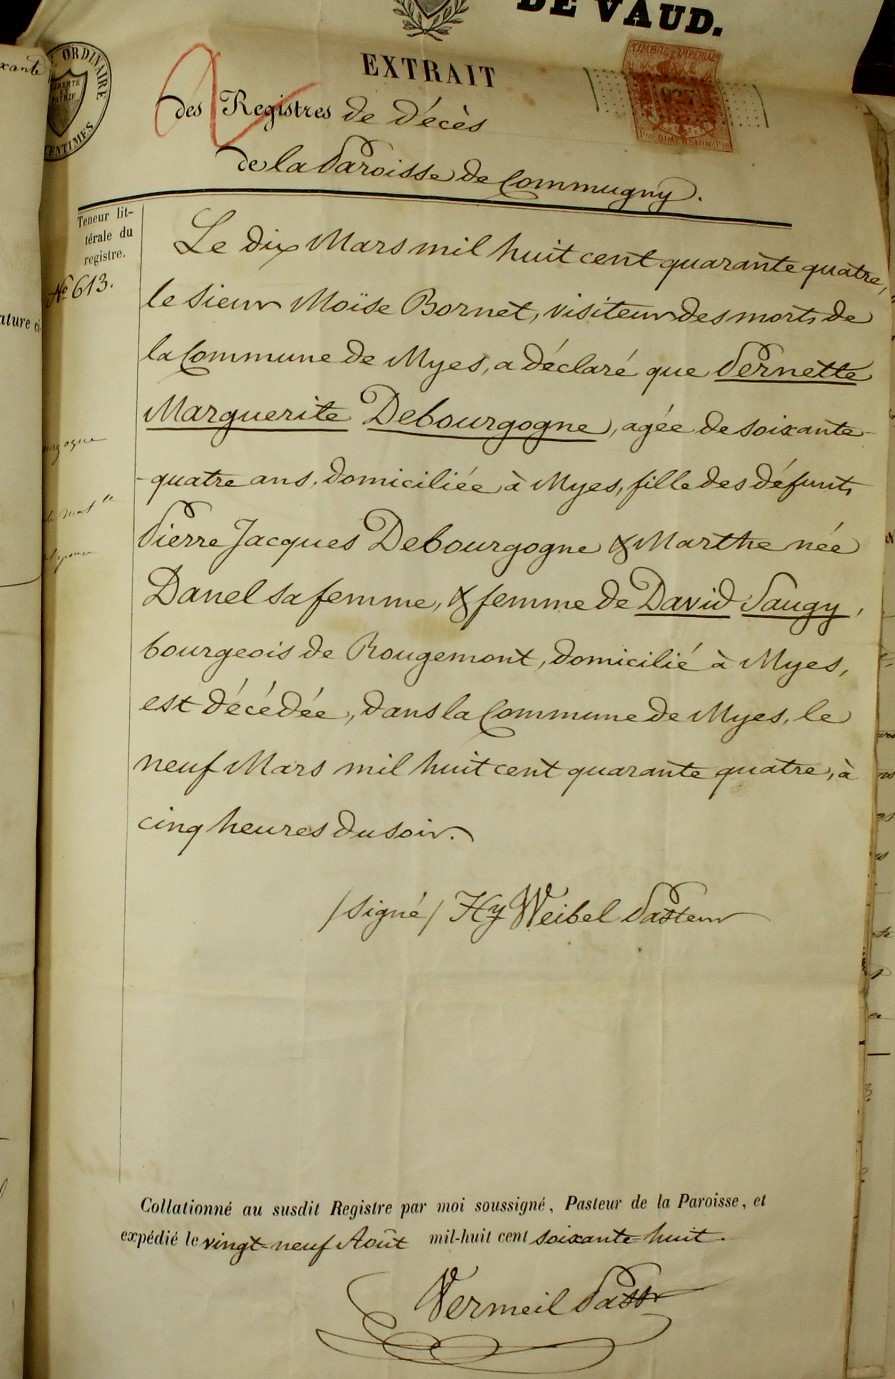 DE VAUD.
ORDINAIRE
CENTIMES
TIMBRE IMPERIAL
EXTRAIT
des Registres de décès
de la Paroisse de Commugny.
Teneur lit-
térale du
registre.
No 613.
Le dix Mars mil huit cent quarante quatre,
le sieur Moïse Bornet, visiteur des morts de
la Commune de Myes, a déclaré que Pernette
Marguerite Debourgogne, agée de soixante-
-quatre ans, domiciliée à Myes, fille des défunts
Pierre Jacques Debourgogne & Marthe née
Danel sa femme, & femme de David Saugy,
bourgeois de Rougemont, domicilié à Myes,
est décédée, dans la Commune de Myes, le
neuf Mars mil huit cent quarante quatre, à
cinq heures du soir.
/signé/ Hy Weibel Pasteur
Collationné au susdit Registre par moi soussigné, Pasteur de la Paroisse, et
expédié le vingt-neuf Août mil-huit cent soixante-huit.
Vermeil Pastr